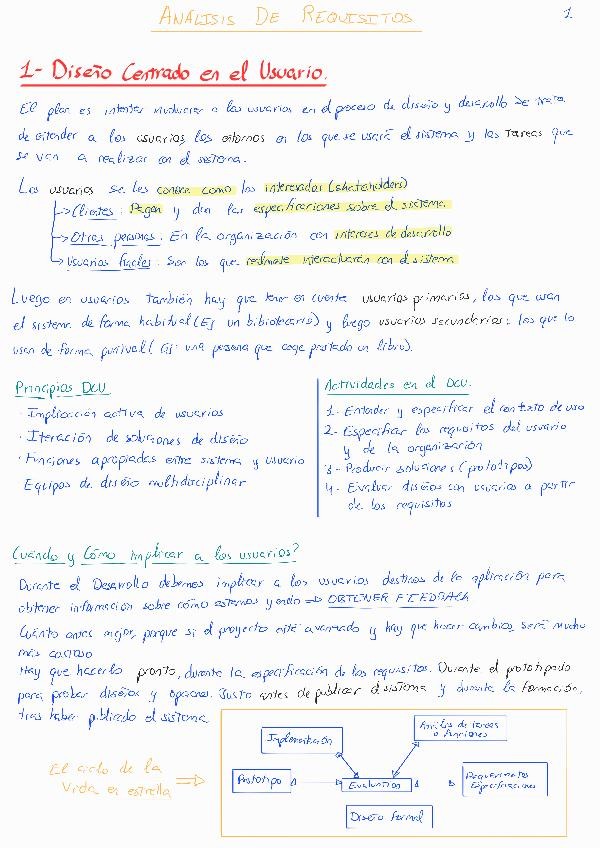 ANÁLISIS DE REQUISITOS
1
1- Diseño Centrado en el Usuario.
El plan es intentar involucrar a los usuarios en el proceso de diseño y desarrollo. Se trata
de entender a los usuarios, los entornos en los que se usará el sistema y las tareas que
se van a realizar con el sistema.
Los usuarios se les conoce como los interesados (stakeholders)
-> Clientes: Pagan y dan las especificaciones sobre el sistema
-> Otras personas: En la organización con intereses de desarrollo
-> Usuarios finales: Son los que realmente interactuarán con el sistema
Luego en usuarios también hay que tener en cuenta usuarios primarios, los que usan
el sistema de forma habitual (Ej un bibliotecario) y luego usuarios secundarios: los que lo
usan de forma puntual (Ej: una persona que coge prestado un libro).
Principios DCU
· Implicación activa de usuarios
· Iteración de soluciones de diseño
· Funciones apropiadas entre sistema y usuario
Equipos de diseño multidisciplinar
Actividades en el DCU.
1- Entender y especificar el contexto de uso
2- Especificar los requisitos del usuario
y de la organización
3- Producir soluciones (prototipos)
4- Evaluar diseños con usuarios a partir
de los requisitos
Cuándo y Cómo implicar a los usuarios?
Durante el Desarrollo debemos implicar a los usuarios destinos de la aplicación para
obtener información sobre cómo estamos yendo => OBTENER FEEDBACK
Cuánto antes mejor, porque si el proyecto esté avanzado y hay que hacer cambios, será mucho
más costoso
Hay que hacerlo pronto, durante la especificación de los requisitos. Durante el prototipado
para probar diseños y opciones. Justo antes de publicar el sistema y durante la formación,
tras haber publicado el sistema
El ciclo de la
Vida en estrella
Implementación
Análisis de tareas
o funciones
Prototipo
Evaluation
Requerimientos
Especificaciones
Diseño formal